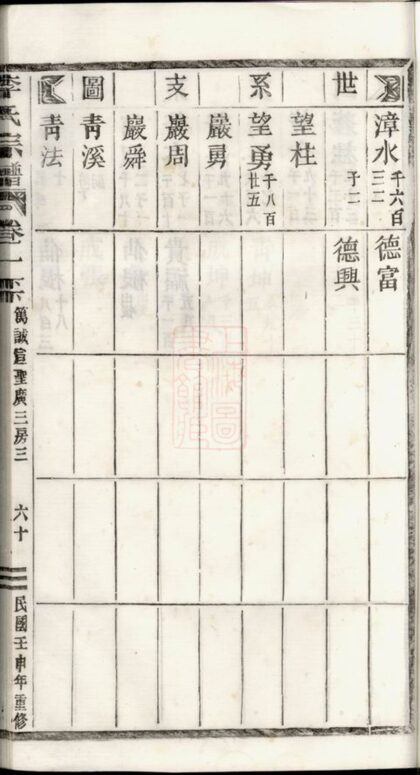 世系支圖
漳水 千六百三二 子二
德富
德興
望柱
望勇 千八百廿五
巖舅
巖周
巖舜
靑溪
靑法
李氏宗譜 卷一下 篤誠宣聖廣三房三 六十 民國壬申年重修